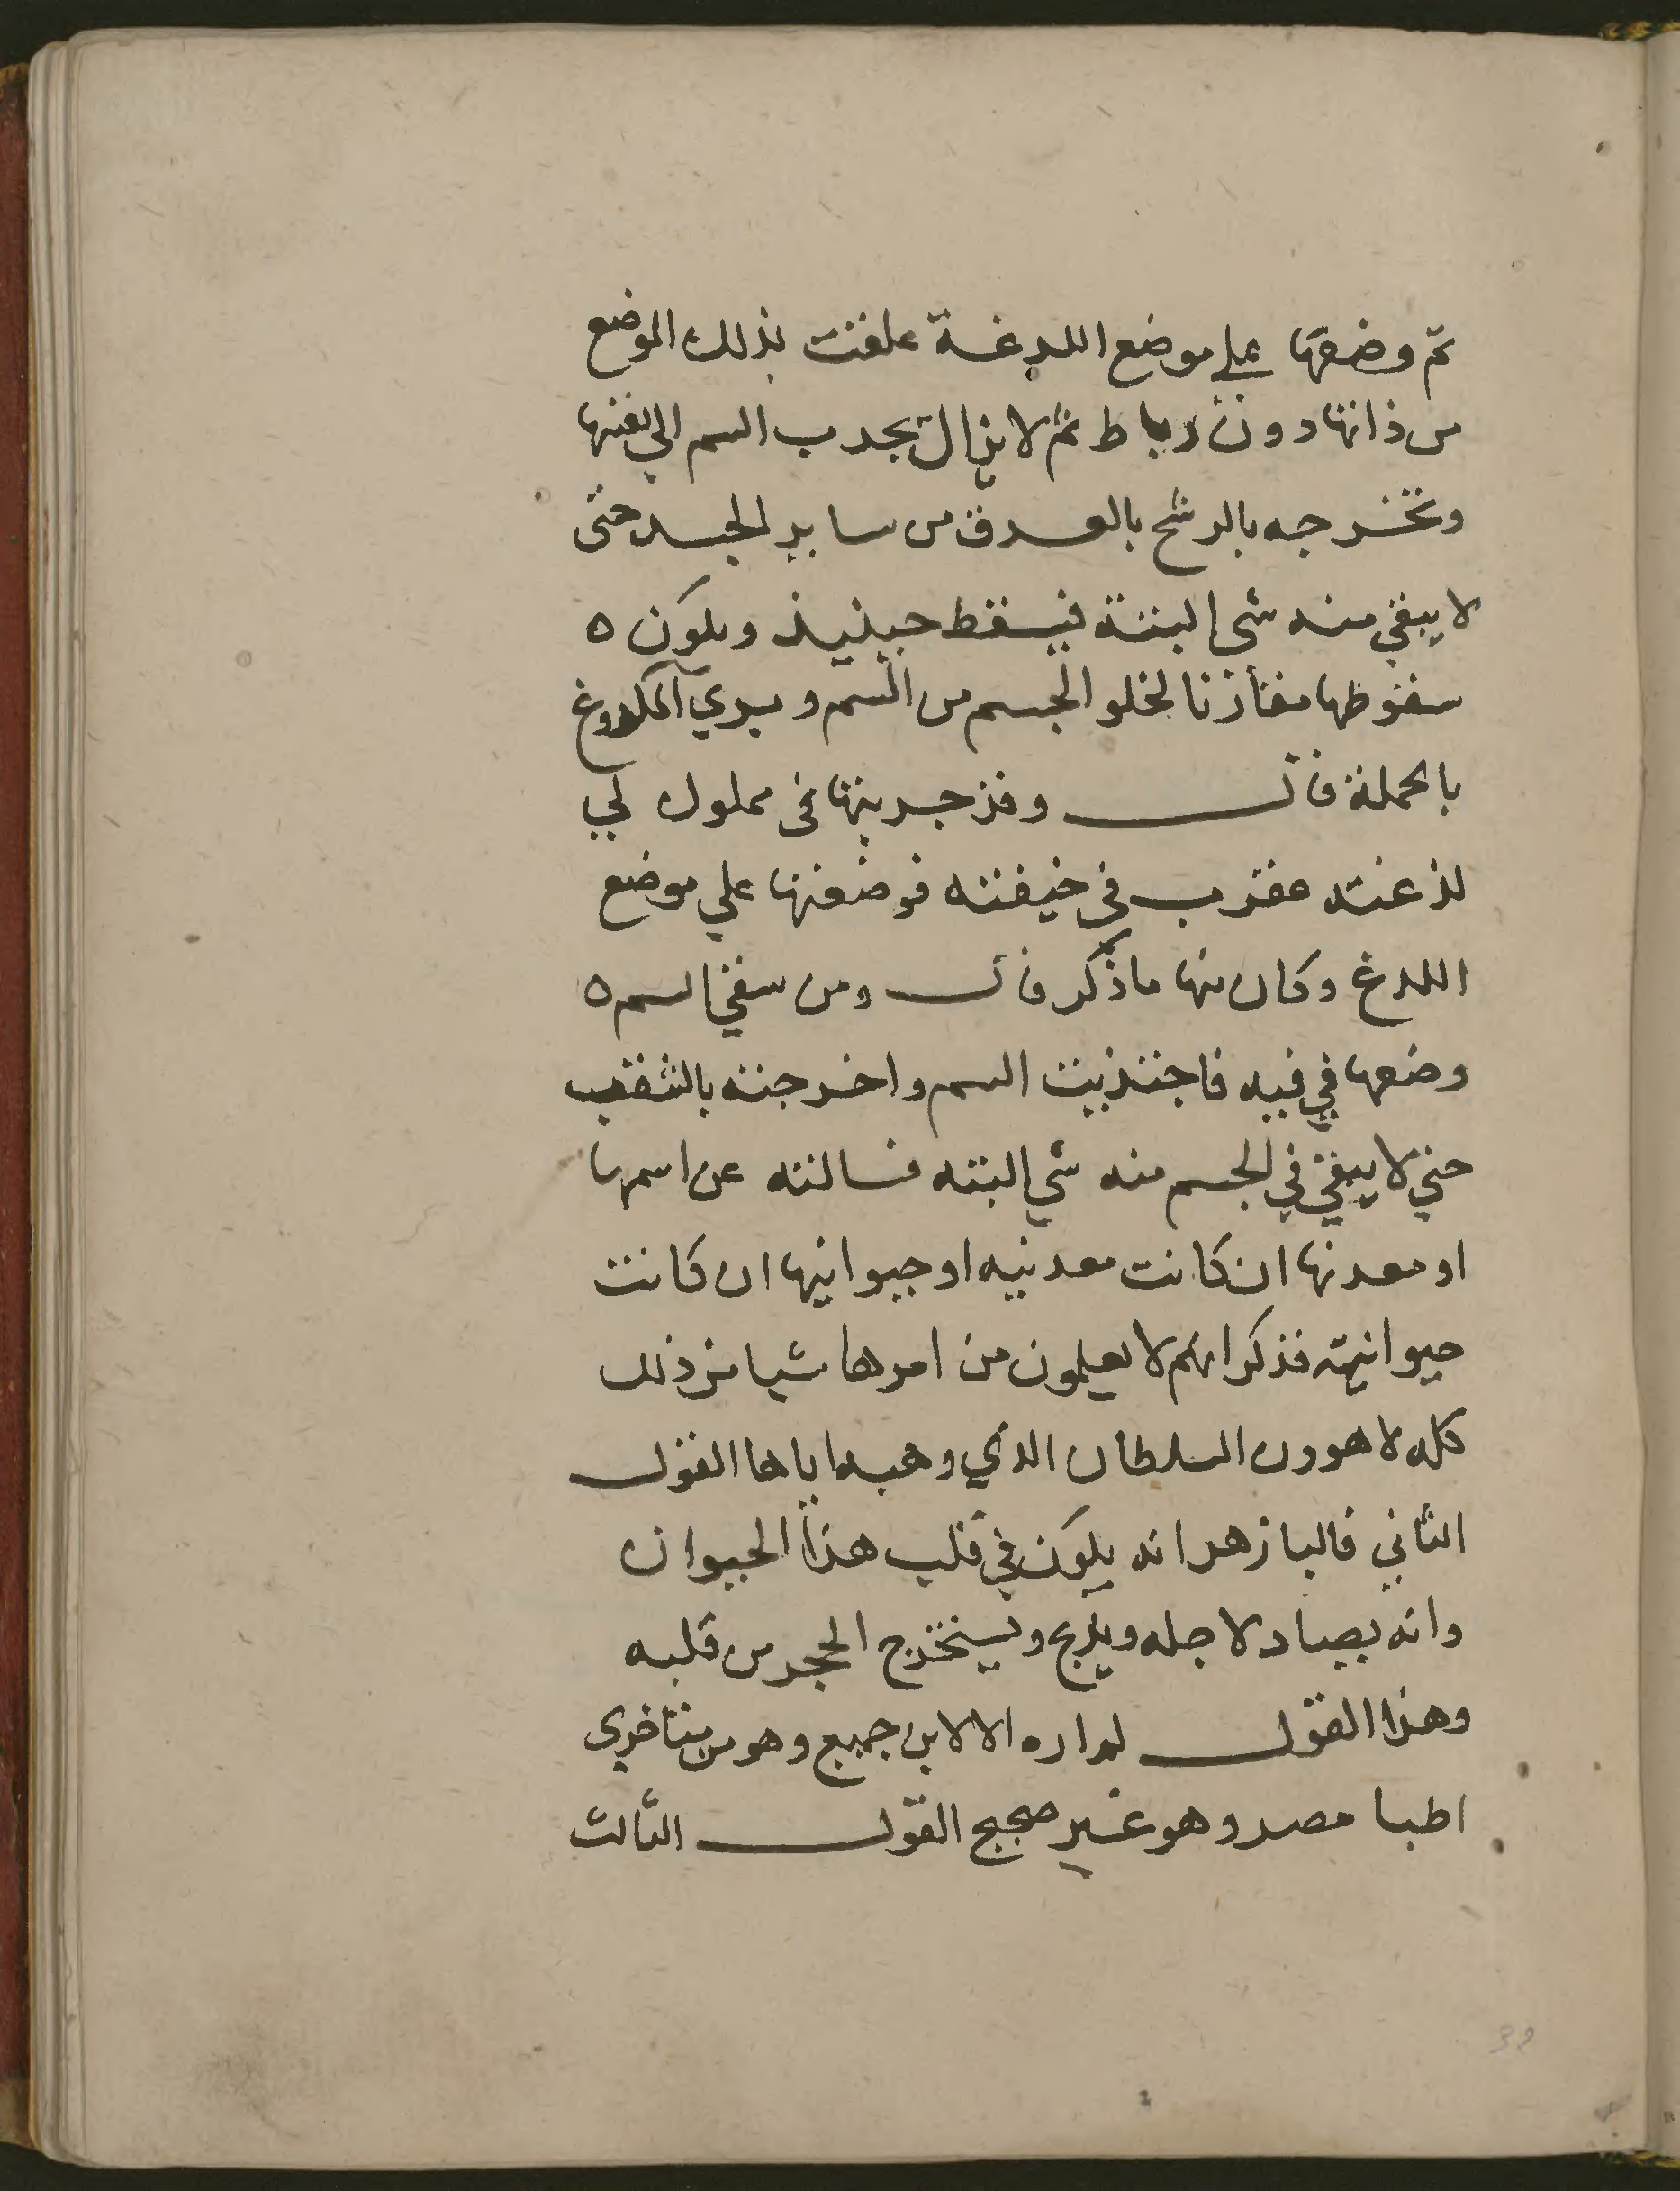 ثم وضعتها على موضع اللدغة علقت بذلك الموضع
من ذاتها دون رباط ثم لا يزال يجدب السم الى نفسها
وتخرجه بالرشح بالعرق من ساير الجسد حتى
لا يبقى منه شي البتة فيسقط حينيذ ويكون ٥
سقوطها مقارنا لخلو الجسم من السم و يبري الملدوغ
بالجملة قال وقد جربتها في مملوك لي
لذغته عقرب في فوضعتها علي موضع
اللدغ وكان منها ما ذكر قال ومن سقي السم ٥
وضعها في فيه فاجتذبت السم واخرجته
حتي لا يبقي في الجسم منه شي البته فسالته عن اسمها
او معدنها ان كانت معدنيه او حيوانيها ان كانت
حيوانيه فذكر انهم لا يعلمون من امرها شيا من ذلك
كله لا هو ولا السلطان الذي وهبه اياها القول
الثاني في البازهر انه يكون في قلب هذا الحيوان
وانه يصاد لاجله ويذبح ويستخرج الحجر من قلبه
وهذا القول لم اره الا لابن جميع وهو من متاخري
اطبا مصر وهو غير صحيح القول الثالث
32